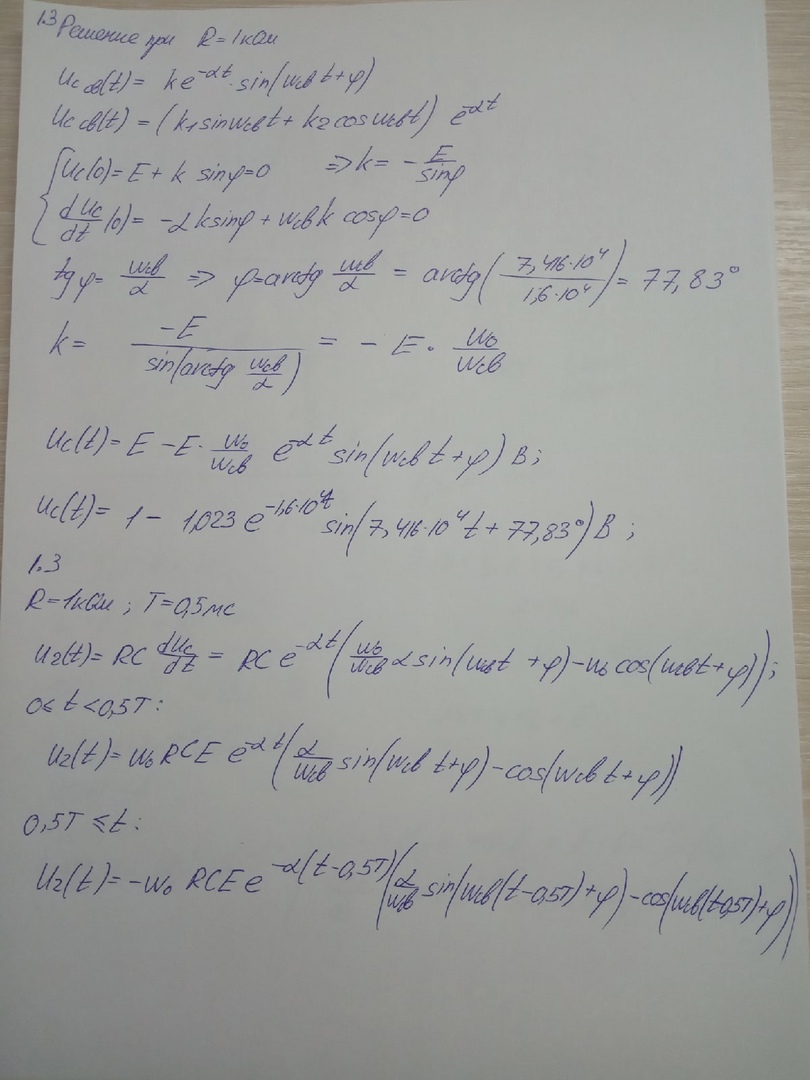 1.3 Решение при R = 1 кОм
Uc св(t) = k e^{-αt} · sin(ωсв t + φ)
Uc св(t) = (k₁ sin ωсв t + k₂ cos ωсв t) e^{-αt}
Uc(0) = E + k sin φ = 0 => k = - E/sin φ
dUc/dt (0) = -α k sin φ + ωсв k cos φ = 0
tg φ = ωсв/α => φ = arctg ωсв/α = arctg(7,416·10⁴/1,6·10⁴) = 77,83°
k = -E/sin(arctg ωсв/α) = - E · ω₀/ωсв
Uc(t) = E - E · ω₀/ωсв e^{-αt} sin(ωсв t + φ) В;
Uc(t) = 1 - 1,023 e^{-1,6·10⁴t} sin(7,416·10⁴ t + 77,83°) В;
1.3
R = 1 кОм; T = 0,5 мс
U₂(t) = RC dUc/dt = RC e^{-αt} (ω₀/ωсв α sin(ωсв t + φ) - ω₀ cos(ωсв t + φ));
0 ≤ t < 0,5T:
U₂(t) = ω₀ RCE e^{-αt} (α/ωсв sin(ωсв t + φ) - cos(ωсв t + φ))
0,5T ≤ t:
U₂(t) = -ω₀ RCE e^{-α(t-0,5T)} (α/ωсв sin(ωсв(t-0,5T) + φ) - cos(ωсв(t-0,5T) + φ))